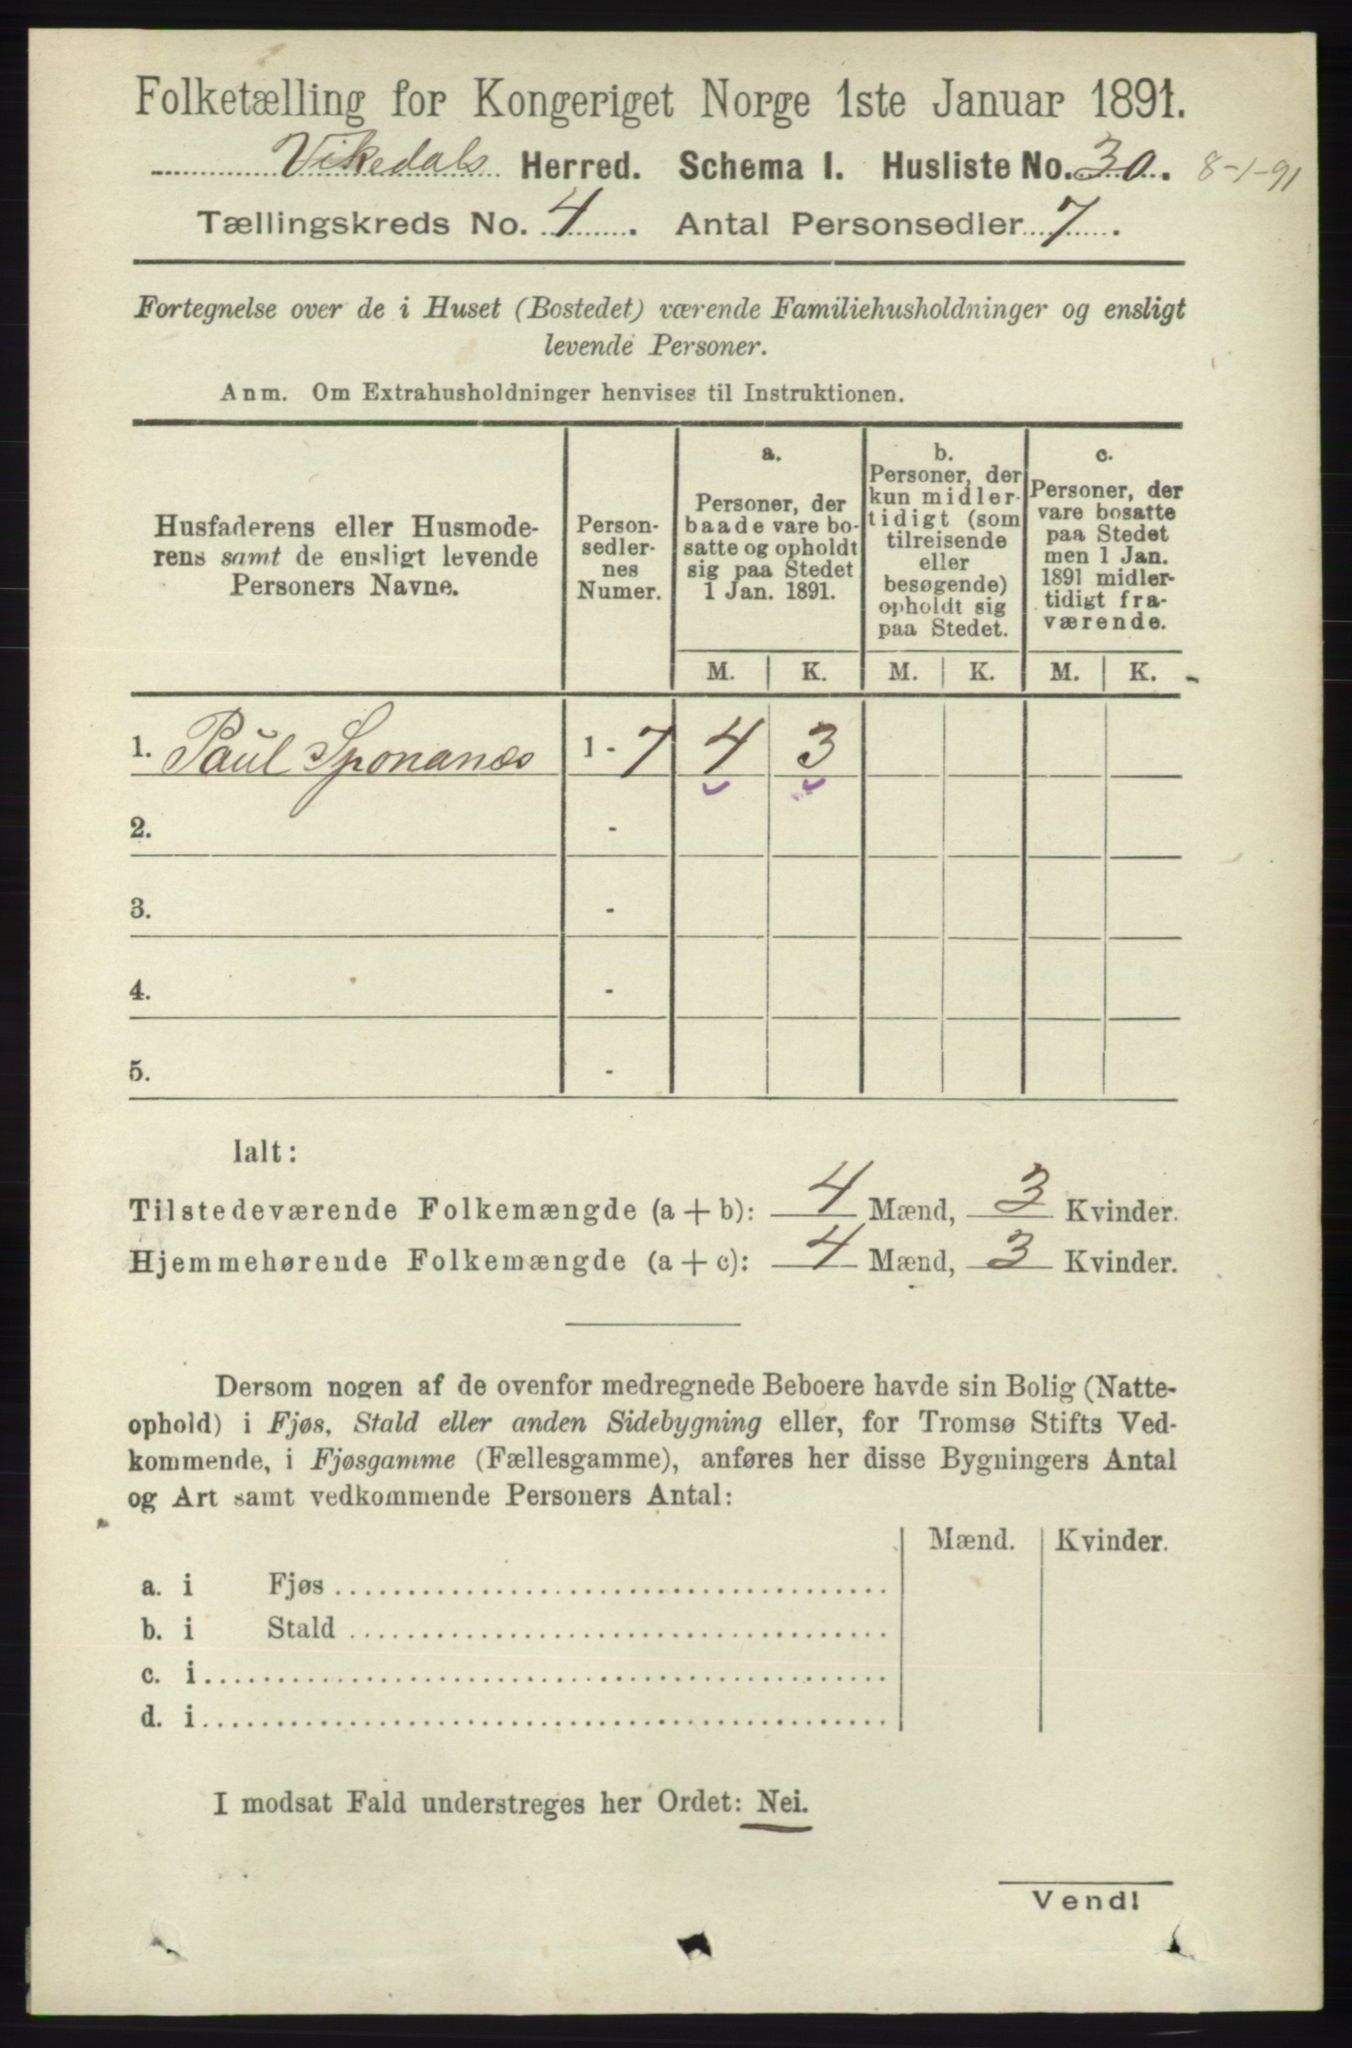 Folketælling for Kongeriget Norge 1ste Januar 1891.
Vikedals Herred. Schema I. Husliste No. 30. 8-1-91
Tællingskreds No. 4. Antal Personsedler 7.
Fortegnelse over de i Huset (Bostedet) værende Familiehusholdninger og ensligt
levende Personer.
Anm. Om Extrahusholdninger henvises til Instruktionen.
Husfaderens eller Husmode-
rens samt de ensligt levende
Personers Navne.
Person-
sedler-
nes
Numer.
a.
Personer, der
baade vare bo-
satte og opholdt
sig paa Stedet
1 Jan. 1891.
b.
Personer, der
kun midler-
tidigt (som
tilreisende
eller
besøgende)
opholdt sig
paa Stedet.
c.
Personer, der
vare bosatte
paa Stedet
men 1 Jan.
1891 midler-
tidigt fra-
værende.
M. K. M. K. M. K.
1. Paul Sponanes 1 - 7 4 3
2. -
3. -
4. -
5. -
Ialt:
Tilstedeværende Folkemængde (a + b): 4 Mænd, 3 Kvinder.
Hjemmehørende Folkemængde (a + c): 4 Mænd, 3 Kvinder.
Dersom nogen af de ovenfor medregnede Beboere havde sin Bolig (Natte-
ophold) i Fjøs, Stald eller anden Sidebygning eller, for Tromsø Stifts Ved-
kommende, i Fjøsgamme (Fællesgamme), anføres her disse Bygningers Antal
og Art samt vedkommende Personers Antal:
Mænd. Kvinder.
a. i Fjøs
b. i Stald
c. i
d. i
I modsat Fald understreges her Ordet: Nei.
Vend!